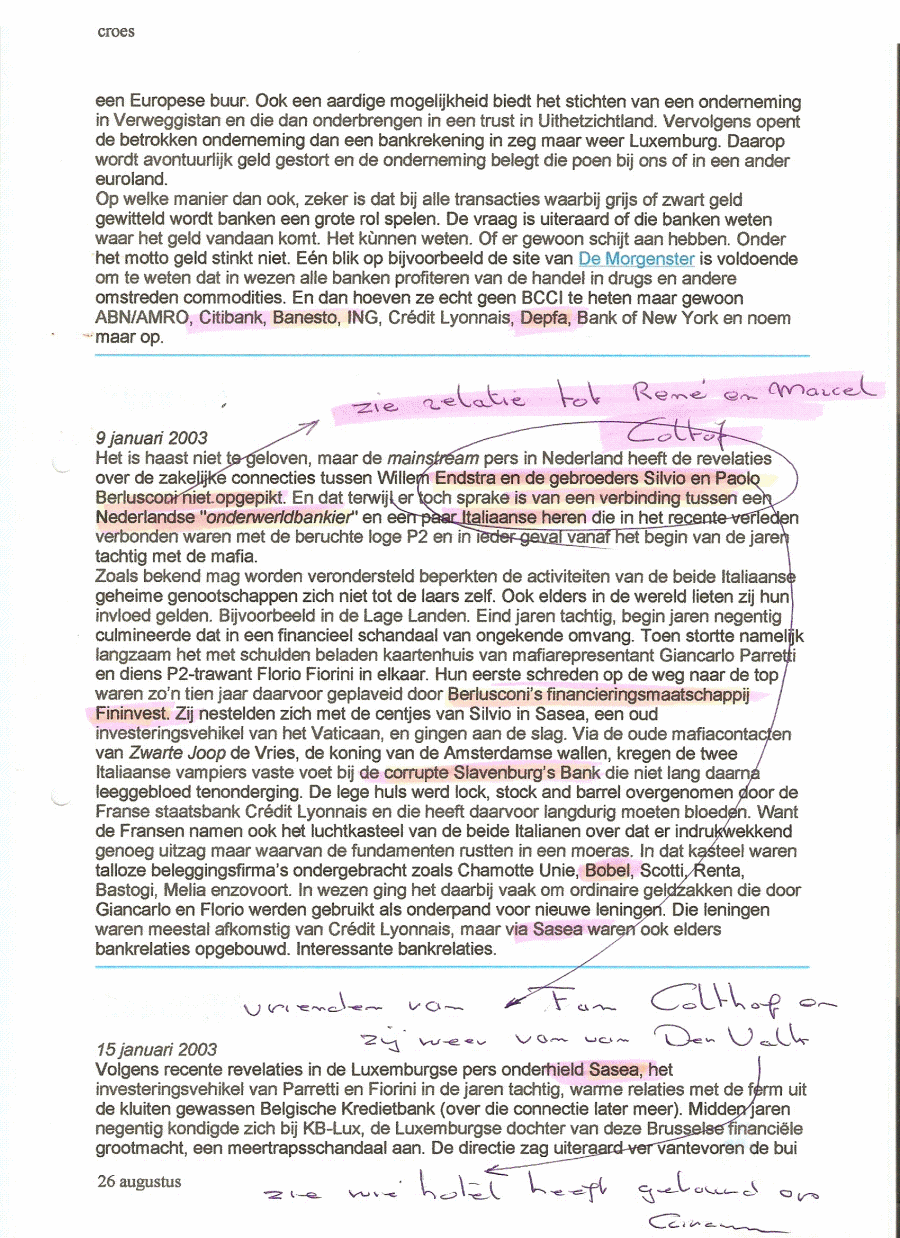 croes
een Europese buur. Ook een aardige mogelijkheid biedt het stichten van een onderneming
in Verweggistan en die dan onderbrengen in een trust in Uithetzichtland. Vervolgens opent
de betrokken onderneming dan een bankrekening in zeg maar weer Luxemburg. Daarop
wordt avontuurlijk geld gestort en de onderneming belegt die poen bij ons of in een ander
euroland.
Op welke manier dan ook, zeker is dat bij alle transacties waarbij grijs of zwart geld
gewitteld wordt banken een grote rol spelen. De vraag is uiteraard of die banken weten
waar het geld vandaan komt. Het kùnnen weten. Of er gewoon schijt aan hebben. Onder
het motto geld stinkt niet. Eén blik op bijvoorbeeld de site van De Morgenster is voldoende
om te weten dat in wezen alle banken profiteren van de handel in drugs en andere
omstreden commodities. En dan hoeven ze echt geen BCCI te heten maar gewoon
ABN/AMRO, Citibank, Banesto, ING, Crédit Lyonnais, Depfa, Bank of New York en noem
maar op.
zie relatie tot René en Marcel
Coltof
9 januari 2003
Het is haast niet te geloven, maar de mainstream pers in Nederland heeft de revelaties
over de zakelijke connecties tussen Willem Endstra en de gebroeders Silvio en Paolo
Berlusconi niet opgepikt. En dat terwijl er toch sprake is van een verbinding tussen een
Nederlandse "onderwerldbankier" en een paar Italiaanse heren die in het recente verleden
verbonden waren met de beruchte loge P2 en in ieder geval vanaf het begin van de jaren
tachtig met de mafia.
Zoals bekend mag worden verondersteld beperkten de activiteiten van de beide Italiaanse
geheime genootschappen zich niet tot de laars zelf. Ook elders in de wereld lieten zij hun
invloed gelden. Bijvoorbeeld in de Lage Landen. Eind jaren tachtig, begin jaren negentig
culmineerde dat in een financieel schandaal van ongekende omvang. Toen stortte namelijk
langzaam het met schulden beladen kaartenhuis van mafiarepresentant Giancarlo Parretti
en diens P2-trawant Florio Fiorini in elkaar. Hun eerste schreden op de weg naar de top
waren zo'n tien jaar daarvoor geplaveid door Berlusconi's financieringsmaatschappij
Fininvest. Zij nestelden zich met de centjes van Silvio in Sasea, een oud
investeringsvehikel van het Vaticaan, en gingen aan de slag. Via de oude mafiacontacten
van Zwarte Joop de Vries, de koning van de Amsterdamse wallen, kregen de twee
Italiaanse vampiers vaste voet bij de corrupte Slavenburg's Bank die niet lang daarna
leeggebloed tenonderging. De lege huls werd lock, stock and barrel overgenomen door de
Franse staatsbank Crédit Lyonnais en die heeft daarvoor langdurig moeten bloeden. Want
de Fransen namen ook het luchtkasteel van de beide Italianen over dat er indrukwekkend
genoeg uitzag maar waarvan de fundamenten rustten in een moeras. In dat kasteel waren
talloze beleggingsfirma's ondergebracht zoals Chamotte Unie, Bobel, Scotti, Renta,
Bastogi, Melia enzovoort. In wezen ging het daarbij vaak om ordinaire geldzakken die door
Giancarlo en Florio werden gebruikt als onderpand voor nieuwe leningen. Die leningen
waren meestal afkomstig van Crédit Lyonnais, maar via Sasea waren ook elders
bankrelaties opgebouwd. Interessante bankrelaties.
vrienden van Fam Colthof en
zij weer van van Der Valk
15 januari 2003
Volgens recente revelaties in de Luxemburgse pers onderhield Sasea, het
investeringsvehikel van Parretti en Fiorini in de jaren tachtig, warme relaties met de ferm uit
de kluiten gewassen Belgische Kredietbank (over die connectie later meer). Midden jaren
negentig kondigde zich bij KB-Lux, de Luxemburgse dochter van deze Brusselse financiële
grootmacht, een meertrapsschandaal aan. De directie zag uiteraard ver vantevoren de bui
26 augustus
zie wie hotel heeft gebouwd op